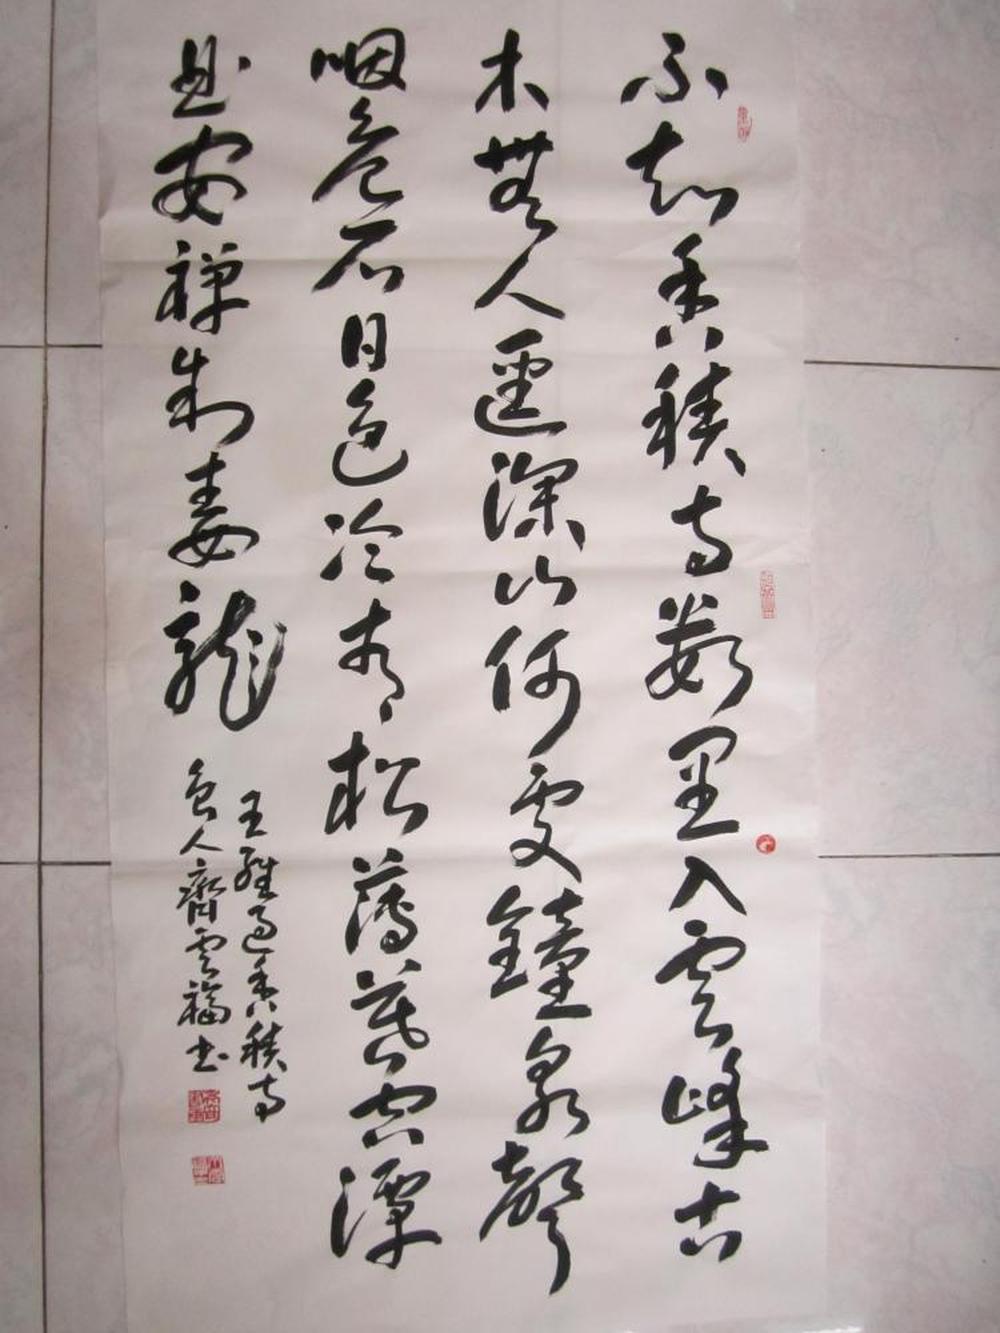 不知香積寺數里入雲峰古
木無人逕深山何處鐘泉聲
咽危石日色冷青松薄暮空潭
曲安禪制毒龍
王維過香積寺
人齊雲福書